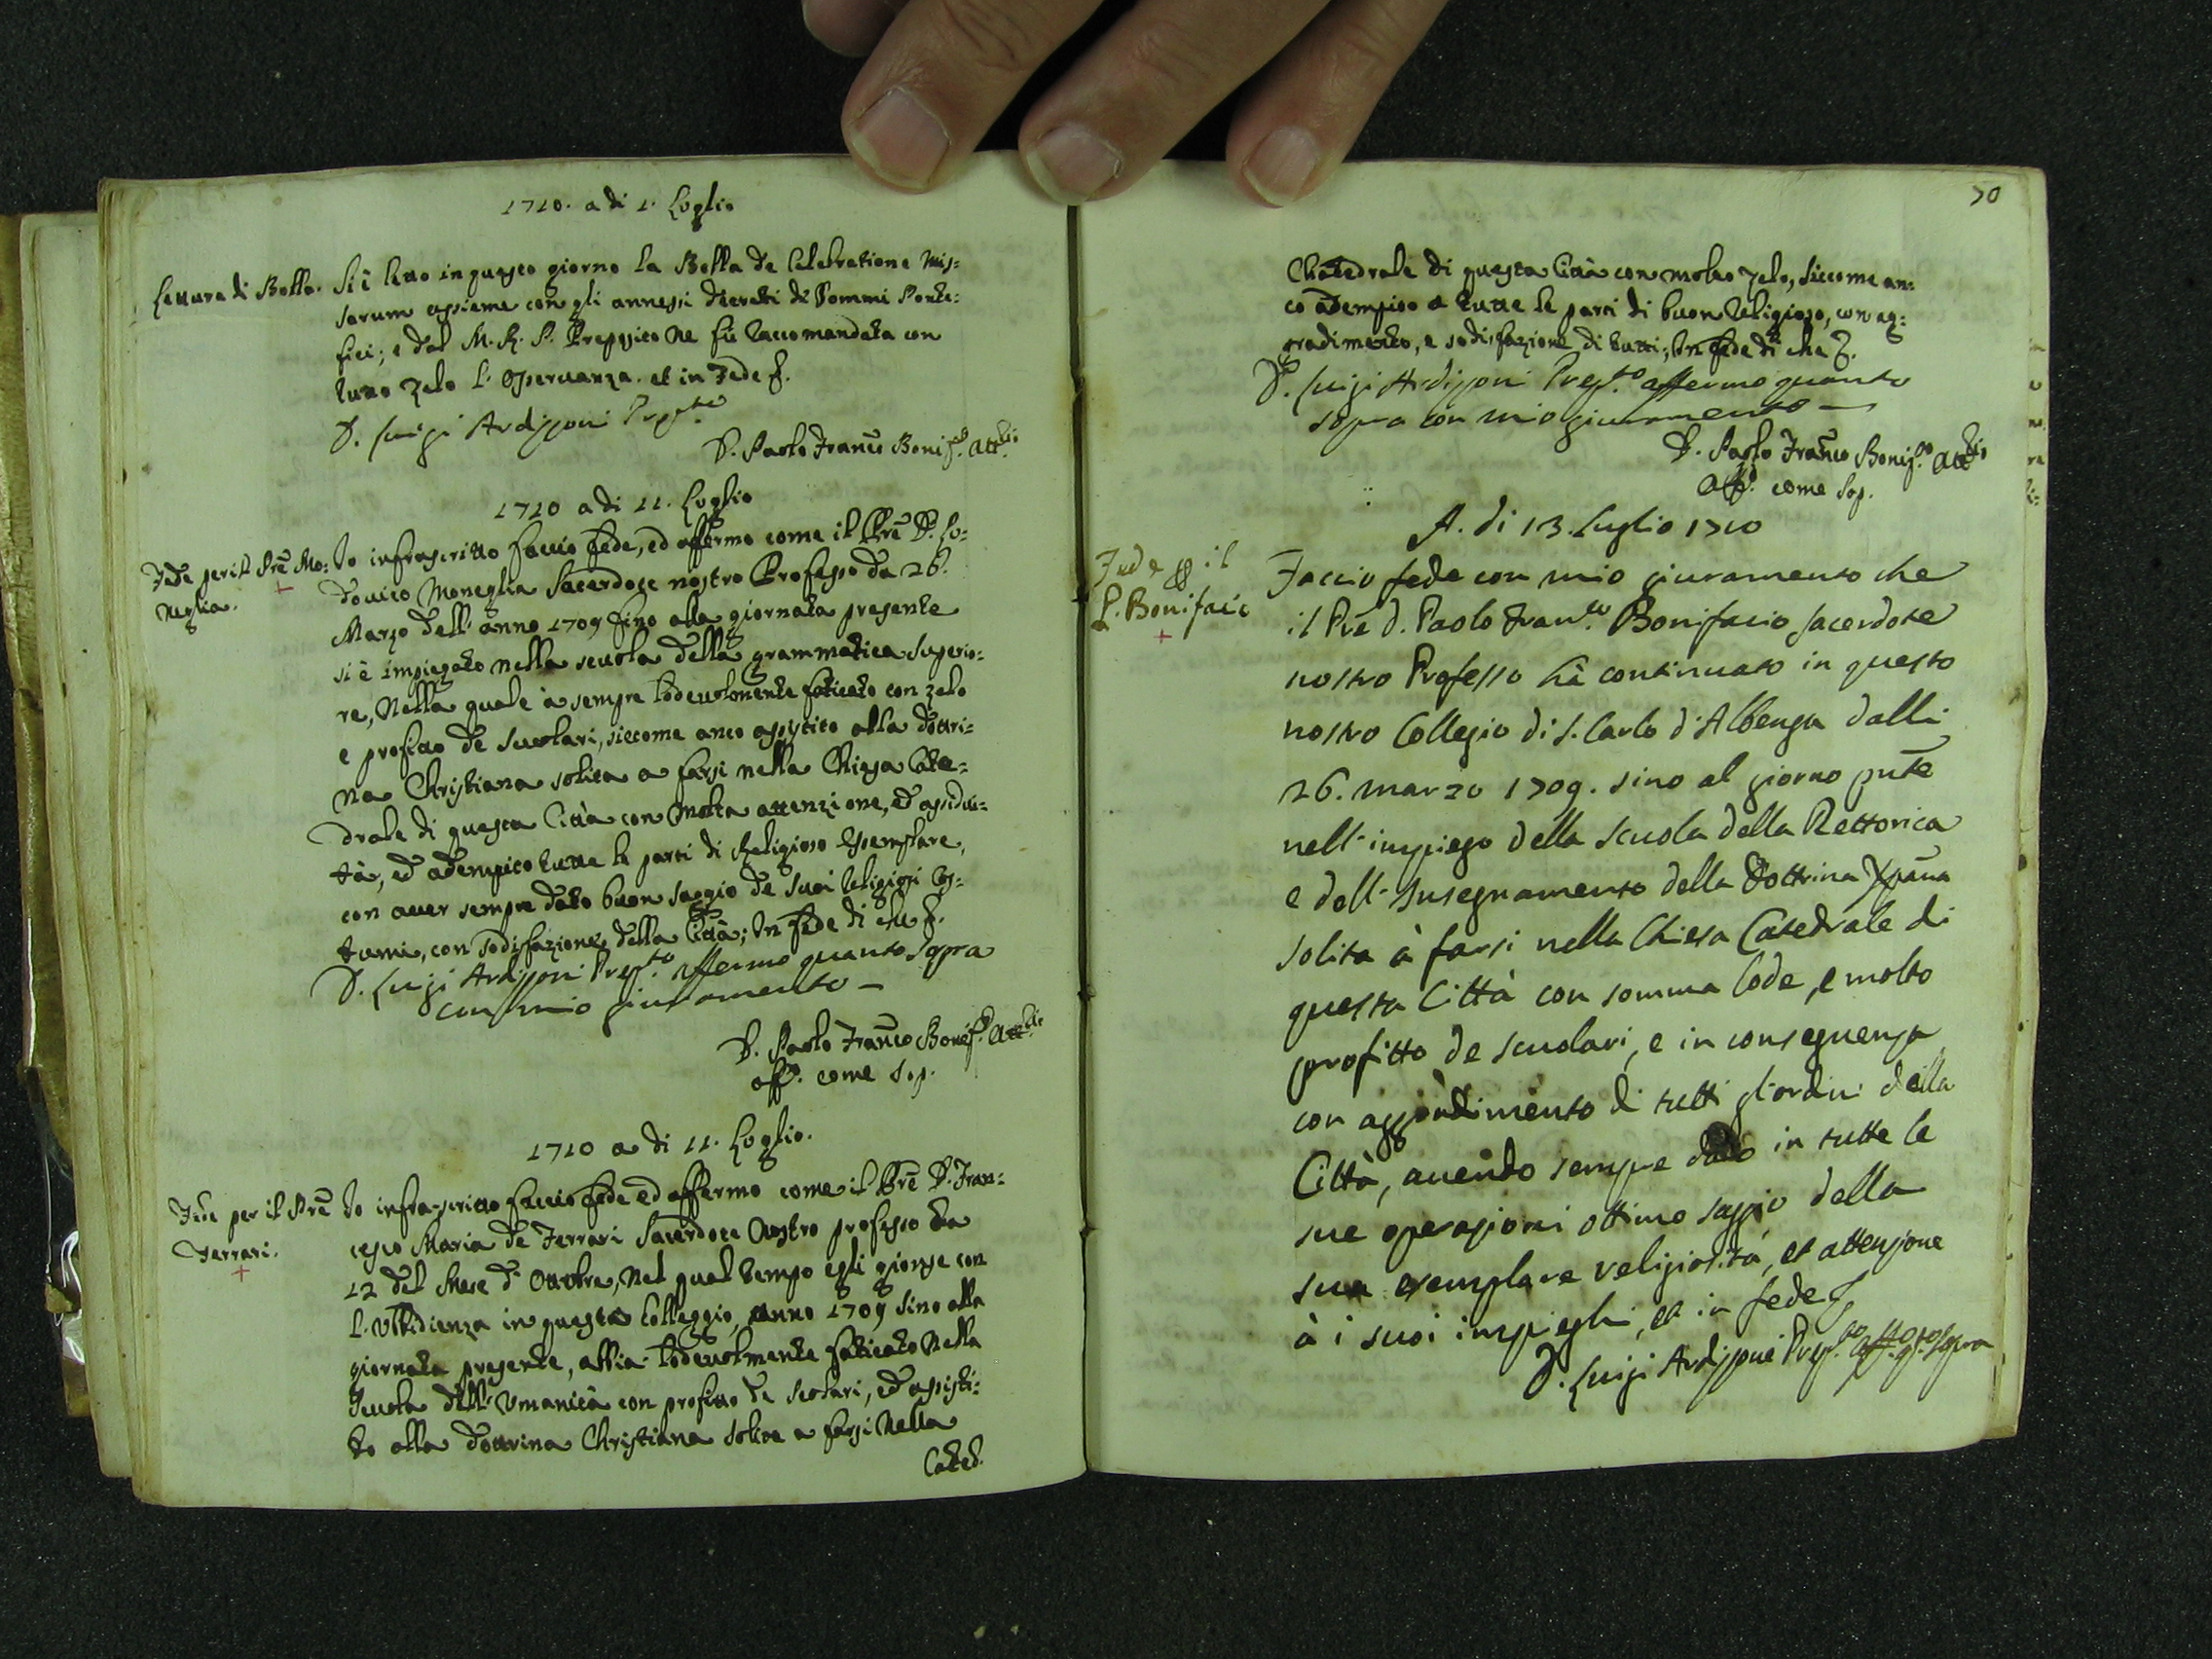 1710. a di 1. Luglio
Lettura di Bolla.
Si è letto in questo giorno la Bolla de Celebratione Mis=
sarum assieme con gli annessi decreti di Sommi Ponte:
fici; e dal M. R. P. Preposito ne fù raccomandata con
tutto zelo l'osservanza. et in fede &.
D. Luigi Ardizzoni Prepto
D. Paolo Franco Bonifo. Attrio
1710 a di 11. Luglio
Fede per il Pre Mo:
neglia.
Io infrascritto faccio fede, ed affermo come il Pre D. Lo:
dovico Moneglia Sacerdote nostro Professo da 26.
Marzo dell'anno 1709 fino alla giornata presente
si è impiegato nella scuola della grammatica superio:
re, Nella quale à sempre lodevolmente faticato con zelo
e profitto de scuolari, siccome anco assistito alla dottri:
na Christiana solita a farsi nella Chiesa Cate=
drale di questa Città con molta attenzione, ed assidui=
tà, ed adempito tutte le parti di Religioso esemplare,
con aver sempre dato buon saggio de suoi religiosi cos=
tumi, con sodisfazione della Città; In fede di che &.
D. Luigi Ardizzoni Prepto. affermo quanto sopra
con mio giuramento —
D. Paolo Franco Bonifo. Attrio
affo. come sop.
1710 a di 11. Luglio.
Fede per il Pre
Ferrari.
Io infrascritto faccio fede ed affermo come il Pre D. Fran=
cesco Maria de Ferrari Sacerdote Nostro professo da
12 del mese d'Ottobre, Nel qual tempo egli gionse con
l'Ubbidienza in questo Colleggio, anno 1709 sino alla
giornata presente, abbia lodevolmente faticato Nella
Scuola dell'Umanità con profitto de scolari, ed assisti=
to alla dottrina Christiana solita a farsi Nella
Cated.
70
Chatedrale di questa Città con molto zelo, siccome an:
co adempito a tutte le parti di buon Religioso, con ag:
gradimento, e sodisfazione di tutti; In fede di che &.
D. Luigi Ardizzoni Prepto. affermo quanto
sopra con mio giuramento —
D. Paolo Franco Bonifo. Attrio
affo. come sop.
A. di 13. Luglio 1710
Fede p il
P. Bonifacio
Faccio fede con mio giuramento che
il Pre D. Paolo Franco. Bonifacio Sacerdote
nostro Professo hà continuato in questo
nostro Collegio di S. Carlo d'Albenga dalli
26. marzo 1709. sino al giorno pnte
nell'impiego della scuola della Rettorica
e dell'Insegnamento della Dottrina Xpana
solita à farsi nella Chiesa Catedrale di
questa Città con somma lode, e molto
profitto de scuolari, e in conseguenza
con aggradimento di tutti gl'ordini della
Città, avendo sempre dato in tutte le
sue operazioni ottimo saggio della
sua exemplare religiosità, et attenzione
à i suoi impieghi, et in fede &
D. Luigi Ardizzone Prepto. affo. qto. sopra